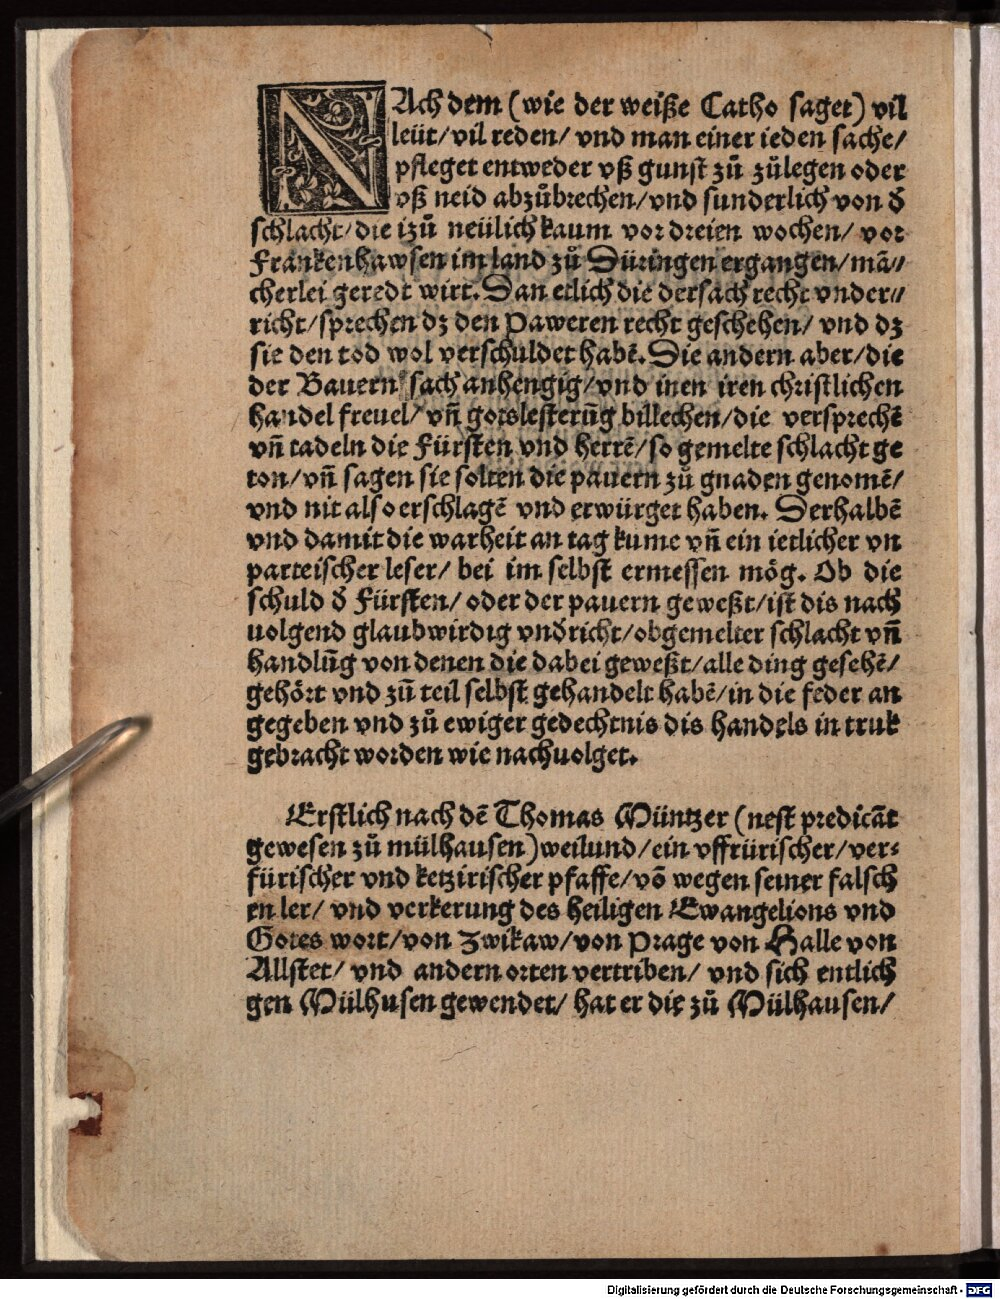 NAch dem (wie der weiße Catho saget) vil
leüt/ vil reden/ vnd man einer ieden sache/
pfleget entweder vß gunst zů zůlegen oder
vß neid abzůbrechen/ vnd sunderlich von d̕
schlacht/ die izů neülich kaum vor dreien wochen/ vor
Frankenhawsen im land zů Düringen ergangen/ mā⸗
cherlei geredt wirt. Dan etlich die der sach recht vnder⸗
richt/ sprechen dz den Paweren recht geschehen/ vnd dz
sie den tod wol verschuldet habē. Die andern aber/ die
der Bauern sach anhengig/ vnd inen iren christlichen
handel freuel/ vn̄ gotslesterūg billechen/ die versprechē
vn̄ tadeln die Fürsten vnd herrē/ so gemelte schlacht ge
ton/ vn̄ sagen sie solten die pauern zů gnaden genomē/
vnd nit also erschlagē vnd erwürget haben. Derhalbē
vnd damit die warheit an tag kume vn̄ ein ietlicher vn
parteischer leser/ bei im selbst ermessen mög. Ob die
schuld d̕ Fürsten/ oder der pauern geweßt/ ist dis nach
uolgend glaubwirdig vnd̕richt/ obgemelter schlacht vn̄
handlūg von denen die dabei geweßt/ alle ding gesehē/
gehört vnd zů teil selbst gehandelt habē/ in die feder an
gegeben vnd zů ewiger gedechtnis dis handels in truk
gebracht worden wie nachuolget.
Erstlich nach dē Thomas Müntzer (nest predicāt
gewesen zů mülhausen) weilund/ ein vffrürischer/ ver⸗
fürischer vnd ketzirischer pfaffe/ vō wegen seiner falsch
en ler/ vnd verkerung des heiligen Ewangelions vnd
Gotes wort/ von Zwikaw/ von Prage von Halle von
Allstet/ vnd andern orten vertriben/ vnd sich entlich
gen Mülhusen gewendet/ hat er die zů Mülhausen/
Digitalisierung gefördert durch die Deutsche Forschungsgemeinschaft - DFG